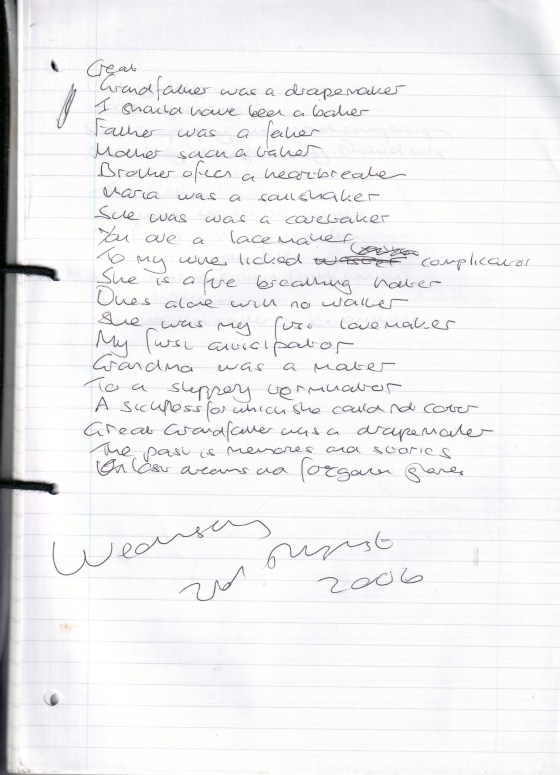 Great
Grandfather was a drapemaker
I should have been a baker
Father was a faker
Mother such a baker
Brother often a heartbreaker
Maria was a
She was was a caretaker
You are a lacemaker
To my licked complicator
She is a fire breathing hater
Dines alone with no waiter
She was my first lovemaker
My first anticipator
Grandma was a
To a slippery terminator
A sickness for which she could not cater
Great Grandfather was a drapemaker
The past is memories and stories
Of lost dreams and forgotten
Wednesday
2nd August
2006